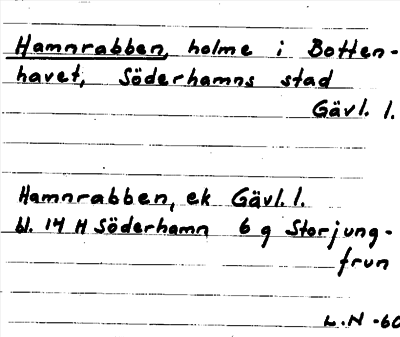 Hamnrabben, holme i Botten-
havet, Söderhamns stad
Gävl. l.
Hamnrabben, ek Gävl. l.
bl. 14 H Söderhamn 6 g Storjung-
frun
L.N -60